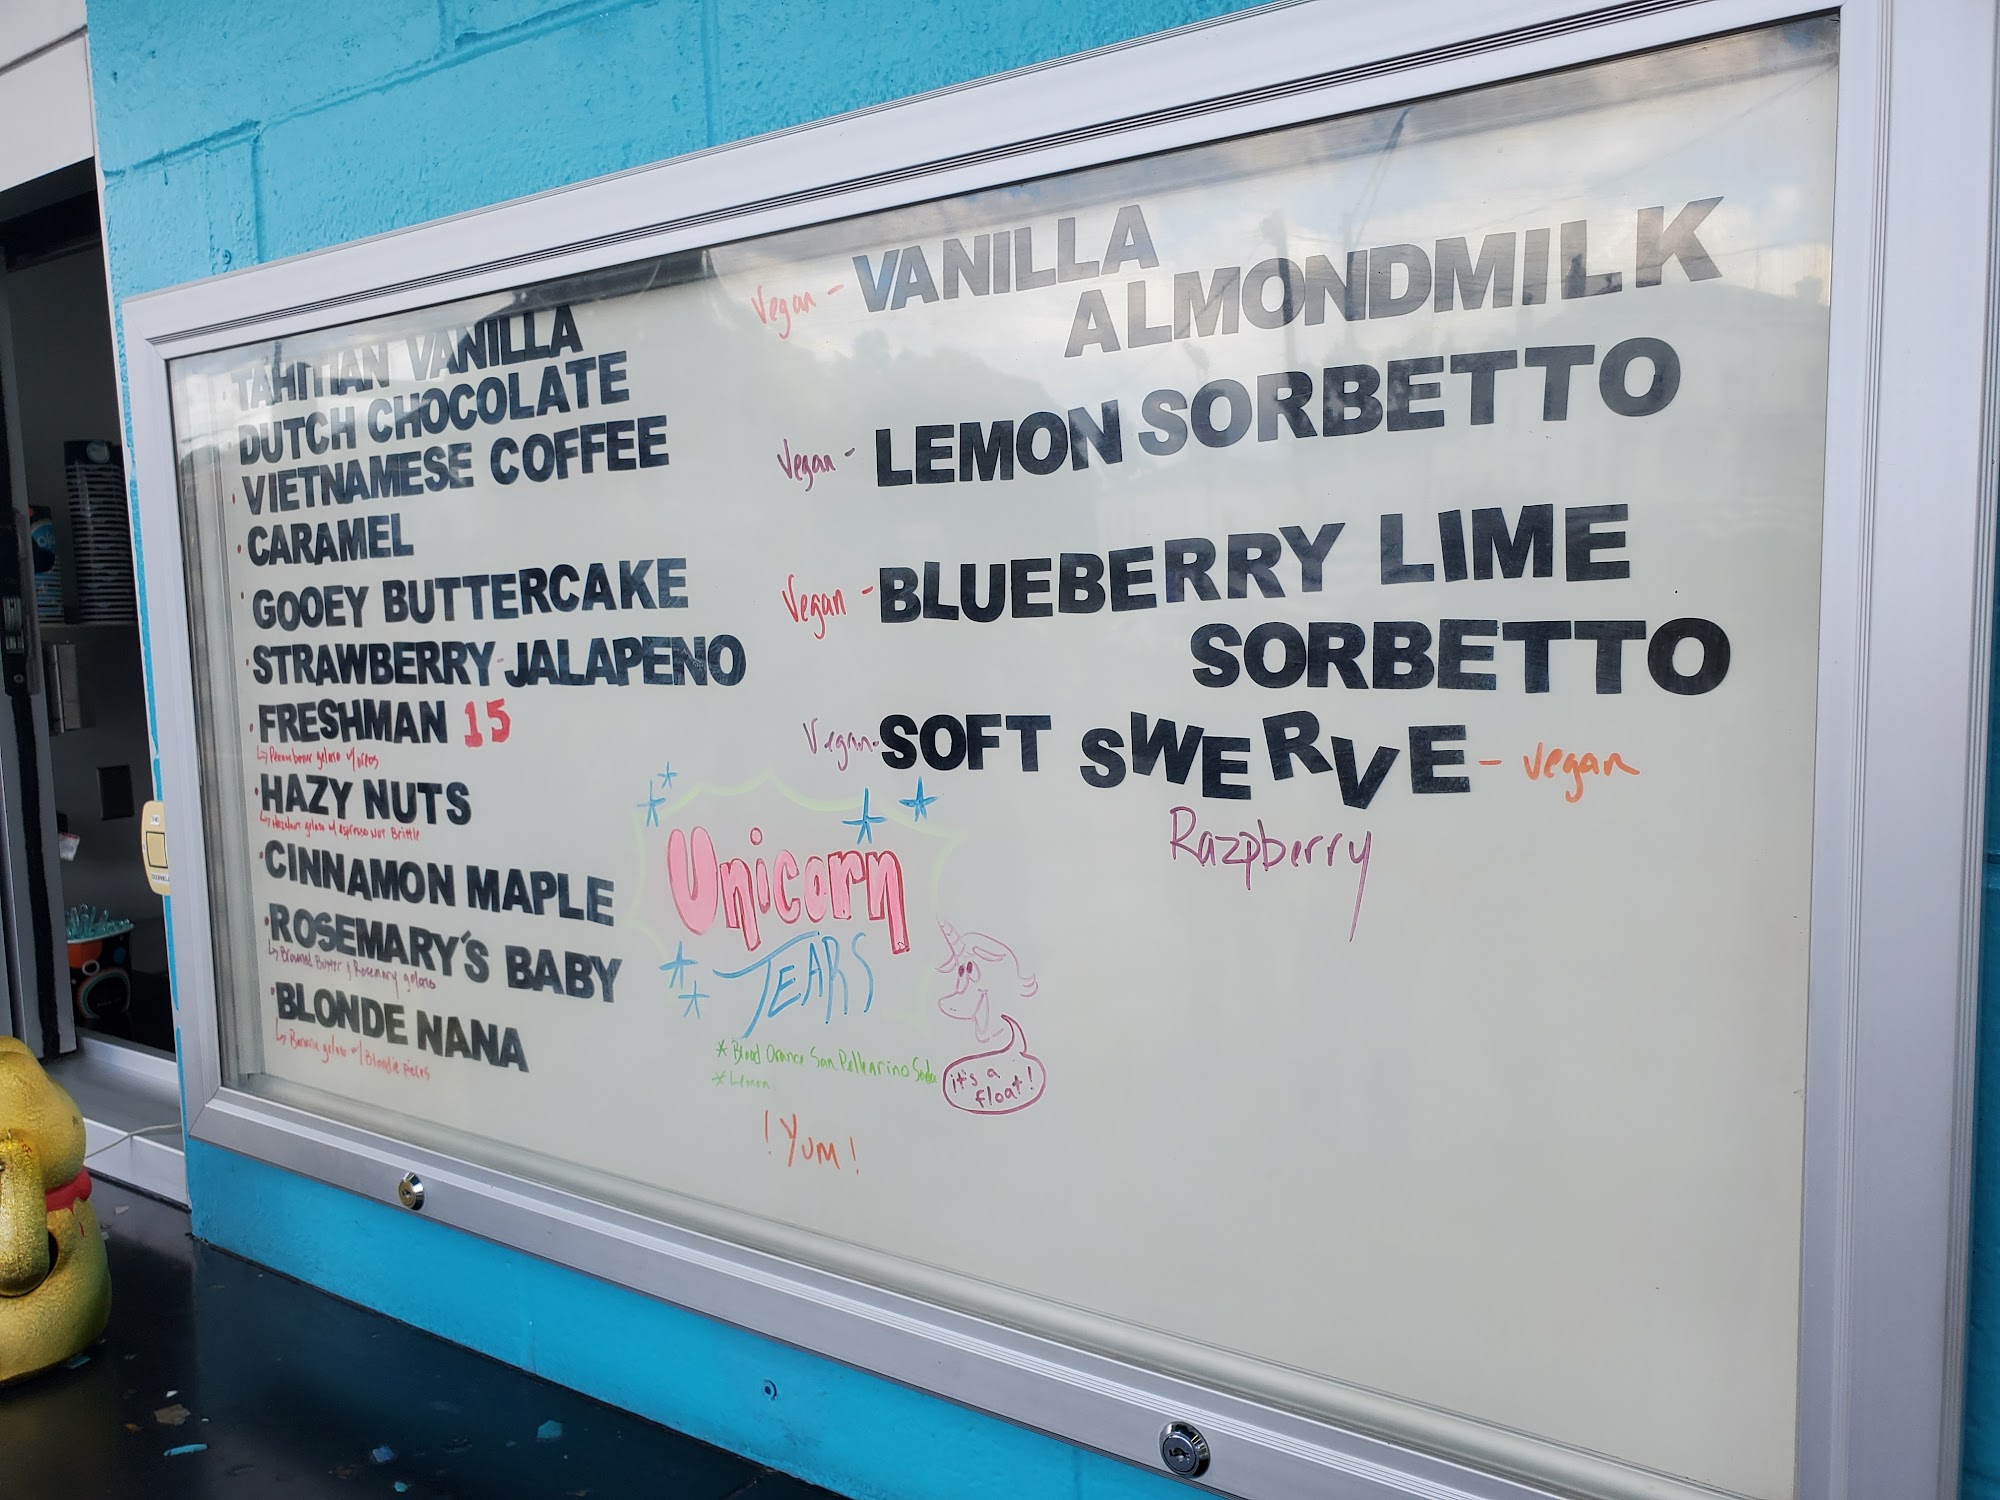 TAHITIAN VANILLA
DUTCH CHOCOLATE
VIETNAMESE COFFEE
CARAMEL
GOOEY BUTTERCAKE
STRAWBERRY-JALAPENO
FRESHMAN 15
gelato w/ oreos
HAZY NUTS
Hazelnut gelato w/ espresso Nut Brittle
CINNAMON MAPLE
ROSEMARY'S BABY
Browned Butter & Rosemary gelato
BLONDE NANA
Banana gelato w/ Blondie pieces
Vegan - VANILLA
ALMONDMILK
Vegan - LEMON SORBETTO
Vegan - BLUEBERRY LIME
SORBETTO
Vegan - SOFT SWERVE - Vegan
Razpberry
Unicorn
TEARS
* Blood Orange San Pellegrino Soda
* Lemon
it's a
float!
! Yum !